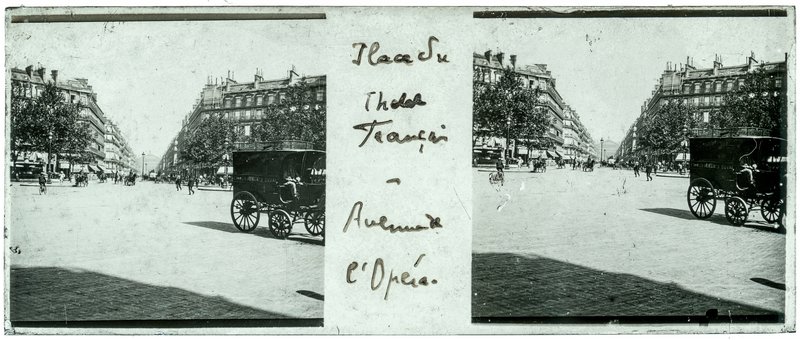 Place du
Théât
Français
-
Avenue de
l'Opéra.